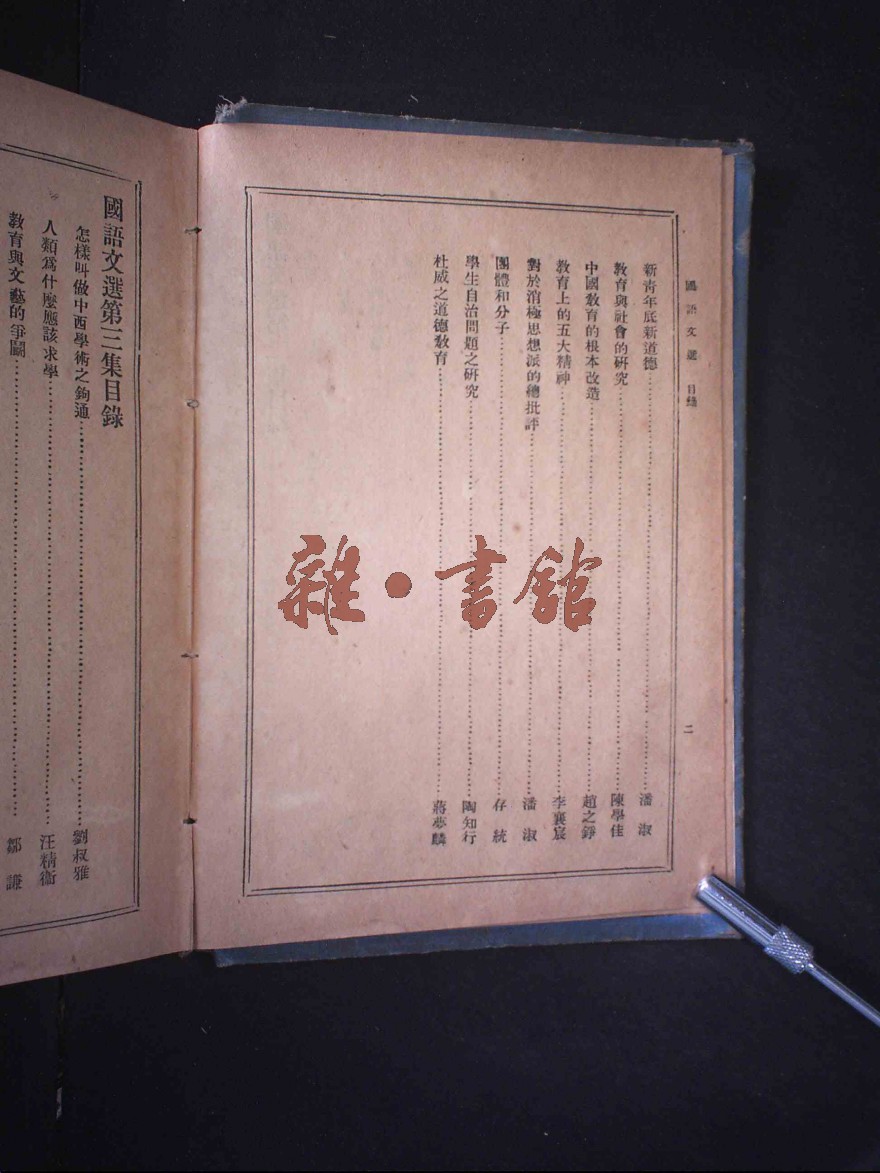 國語文選 目錄 二
新青年底新道德 潘淑
教育與社會的研究 陳學佳
中國教育的根本改造 趙之錚
教育上的五大精神 李襄宸
對於消極思想派的總批評 潘淑
團體和分子 存統
學生自治問題之研究 陶知行
杜威之道德教育 蔣夢麟
國語文選第三集目錄
怎樣叫做中西學術之鉤通 劉叔雅
人類爲什麼應該求學 汪精衞
教育與文藝的爭鬪 鄒謙
雜·書館